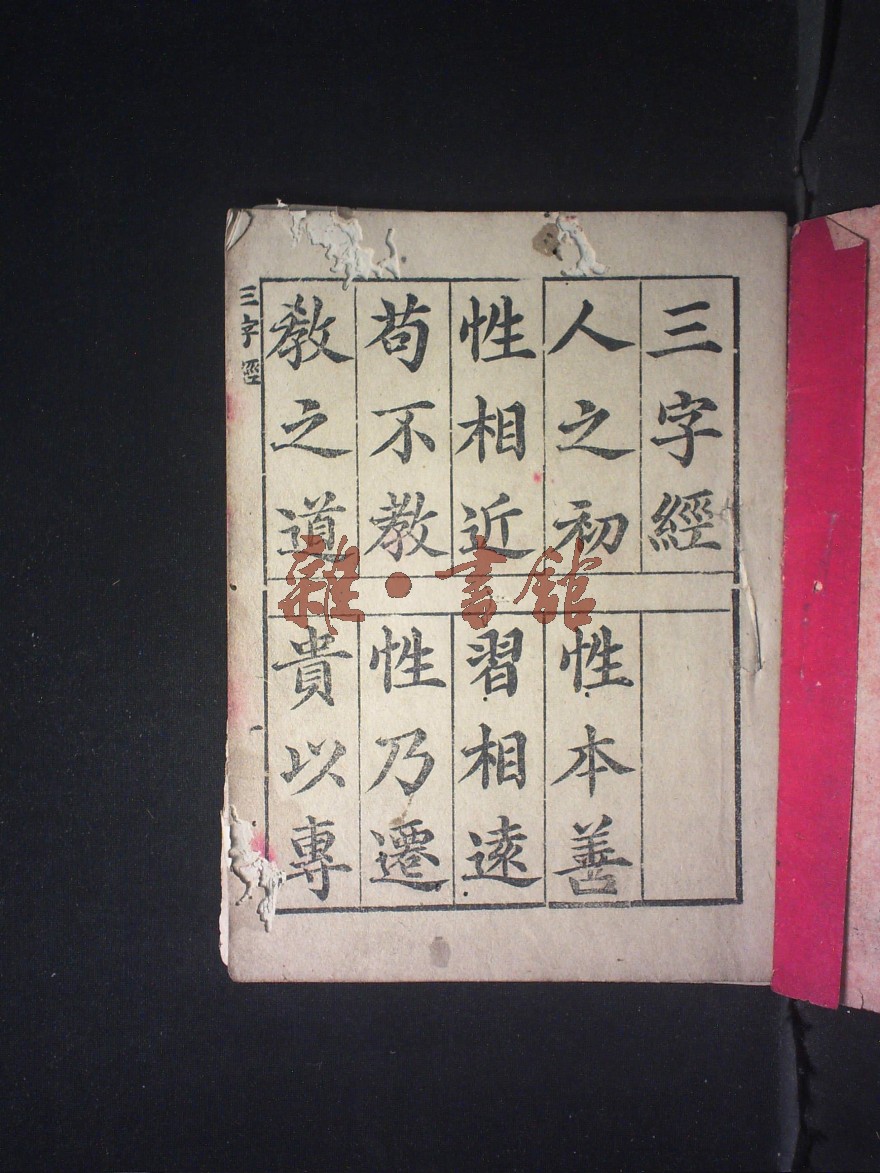 三字經
人之初
性本善
性相近
習相遠
苟不教
性乃遷
教之道
貴以專
三字經
雜·書館